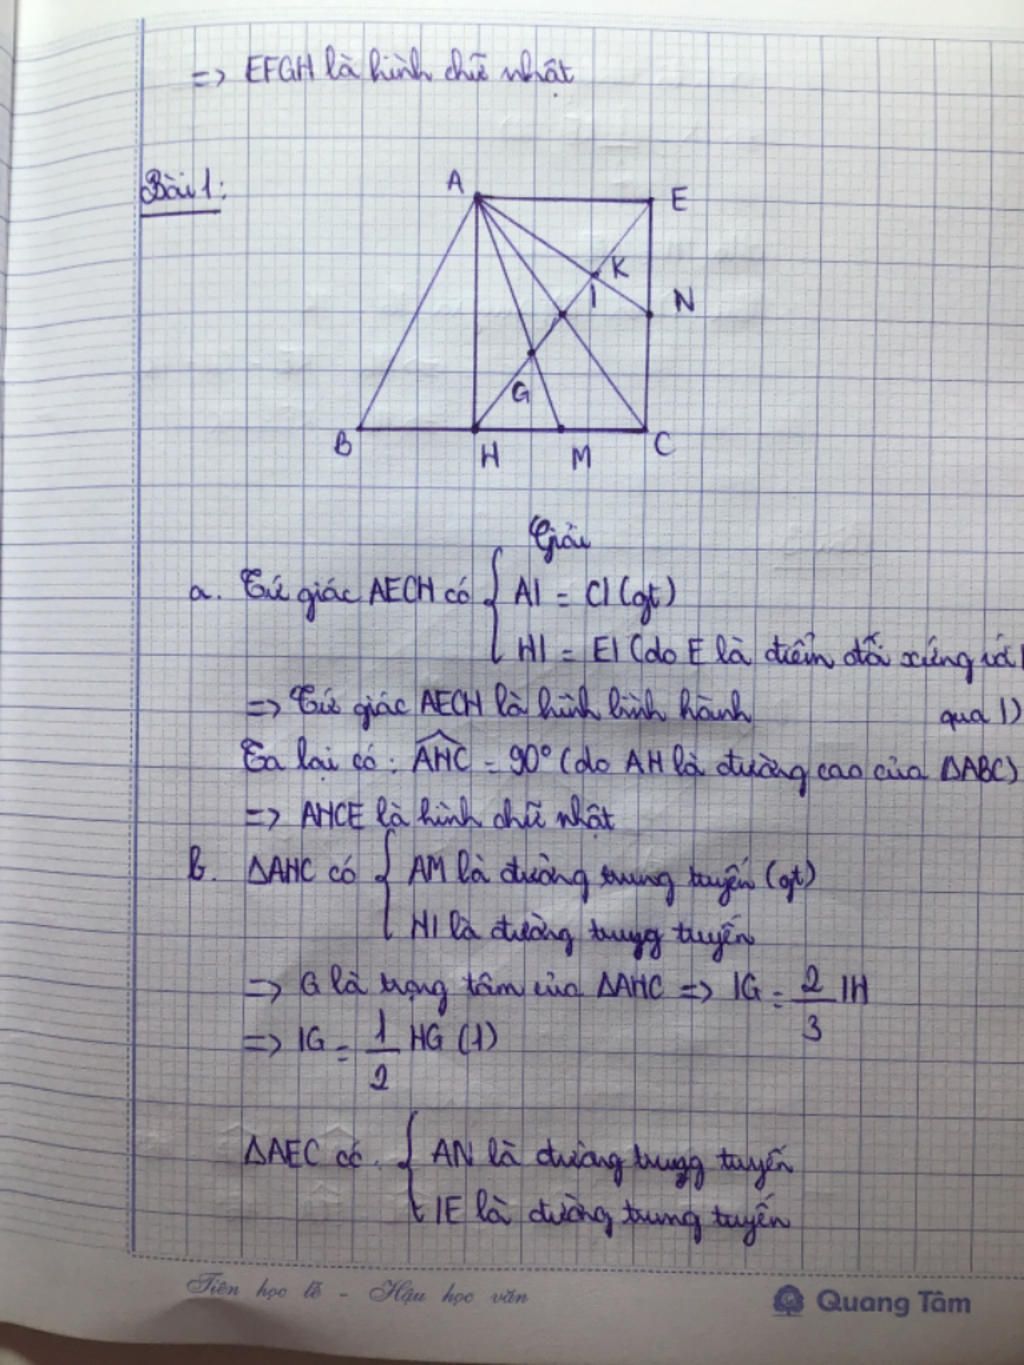 => EFGH là hình chữ nhật
Bài 1:
A
E
K
I
N
G
B
H
M
C
Giải
a. Tứ giác AECH có { AI = CI (gt)
HI = EI (do E là điểm đối xứng với H
qua I)
=> Tứ giác AECH là hình bình hành
Ta lại có: AHC = 90° (do AH là đường cao của ΔABC)
=> AHCE là hình chữ nhật
b. ΔAHC có { AM là đường trung tuyến (gt)
HI là đường trung tuyến
=> G là trọng tâm của ΔAHC => IG = 2/3 IH
=> IG = 1/2 HG (1)
ΔAEC có { AN là đường trung tuyến
IE là đường trung tuyến
Tiên học lễ - Hậu học văn
Quang Tâm